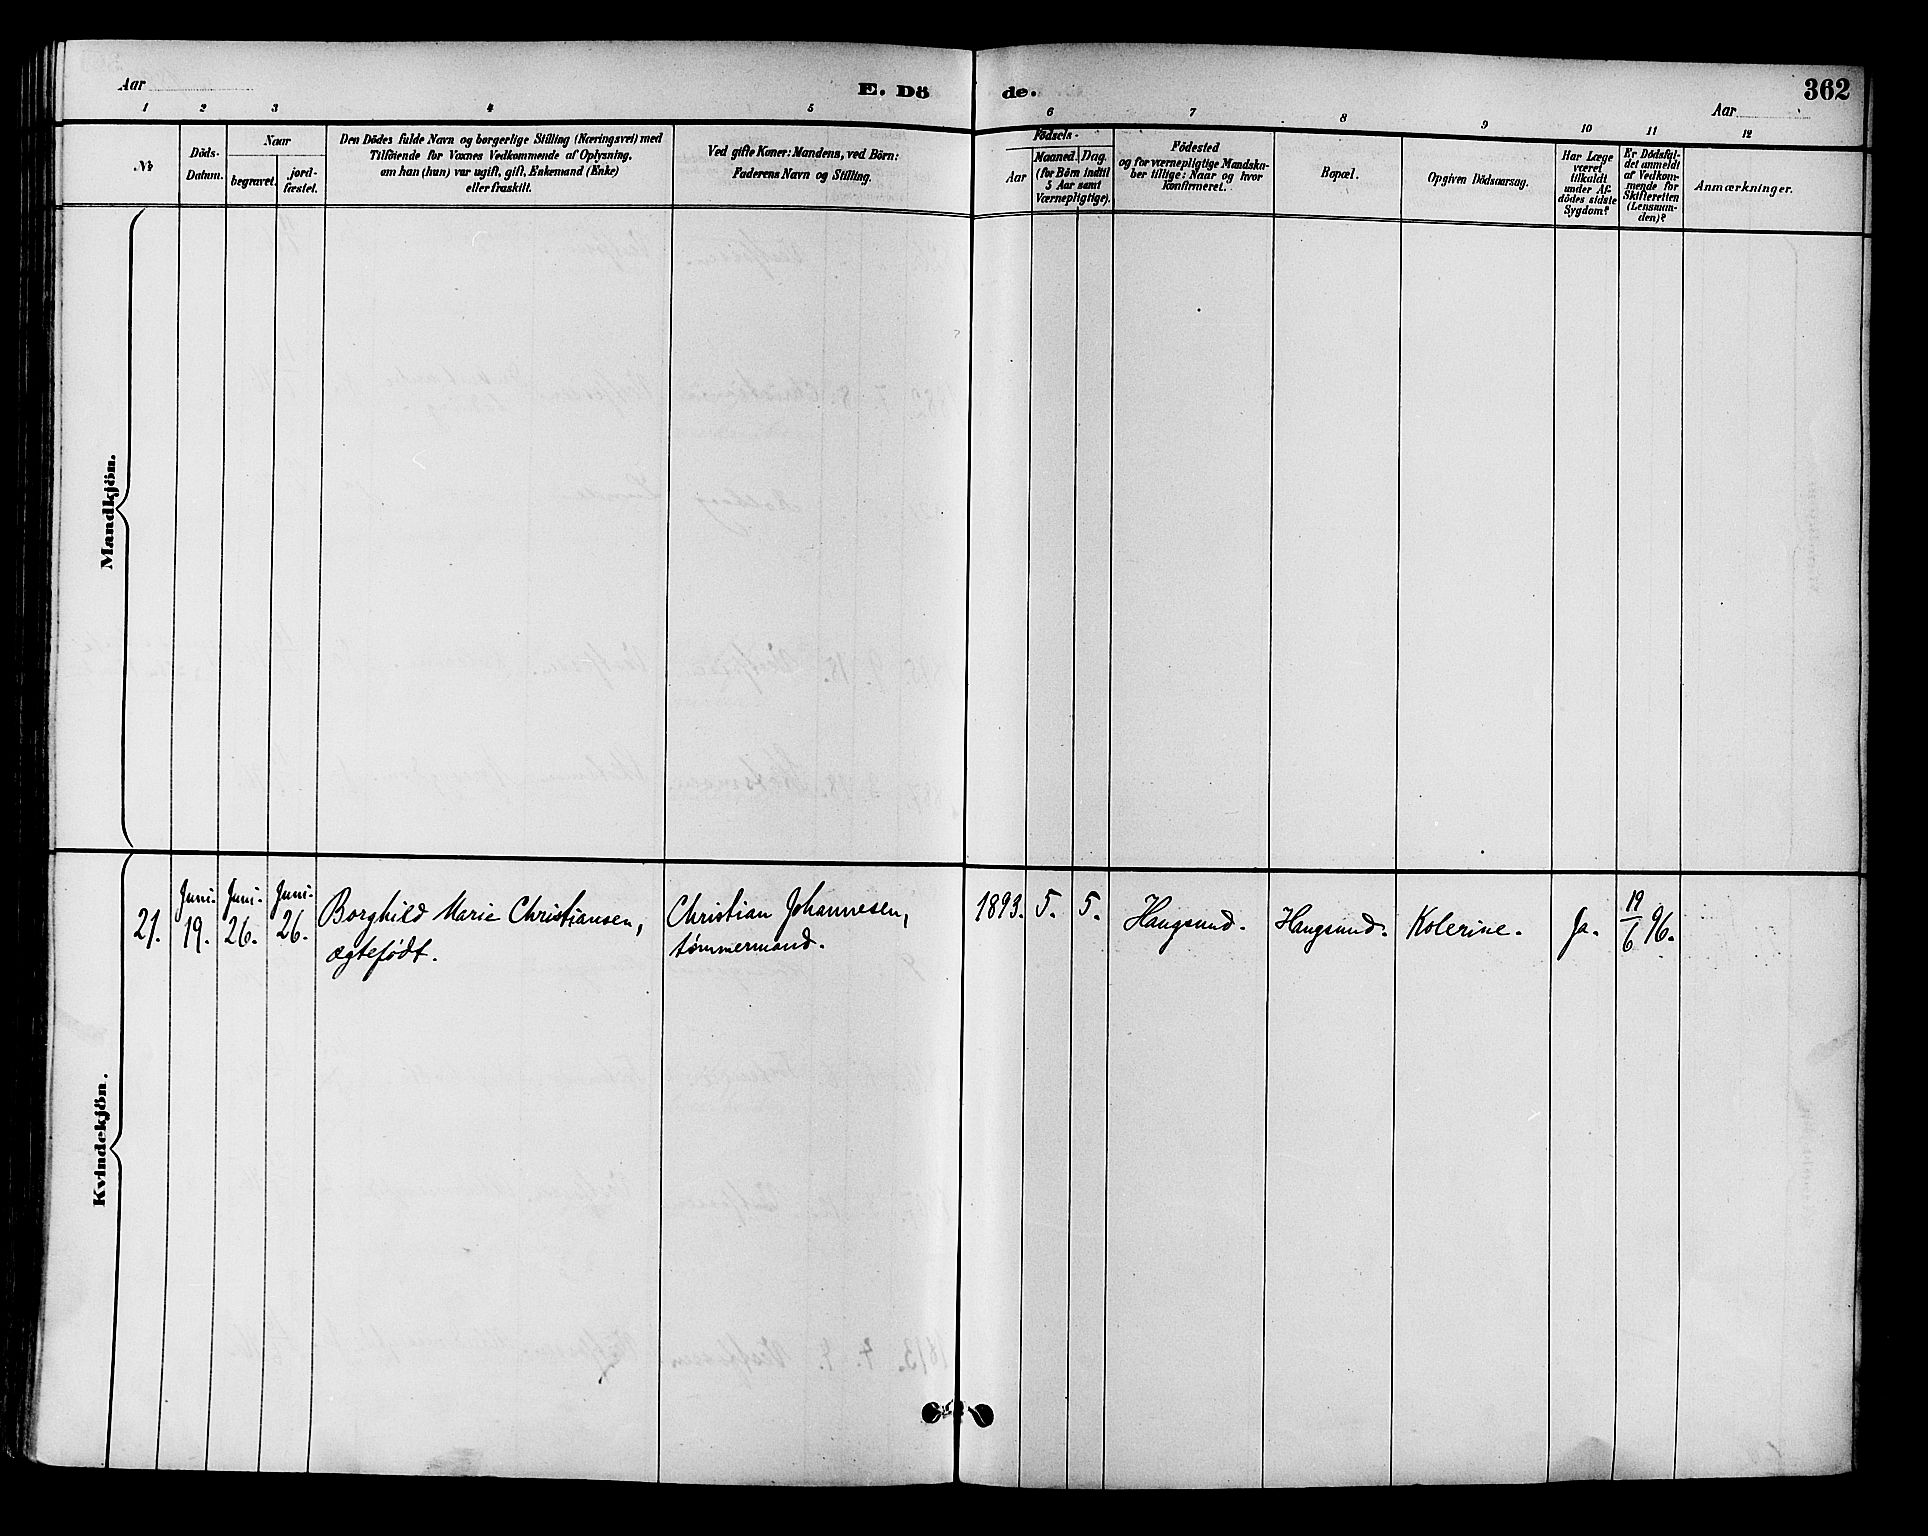 Aar
E. Dö
de.
Aar
362
1 2 3 4 5 6 7 8 9 10 11 12
No
Döds-
Datum.
Naar
begravet.
jord-
fæstet.
Den Dödes fulde Navn og borgerlige Stilling (Næringsvei) med
Tilföiende for Voxnes Vedkommende af Oplysning,
om han (hun) var ugift, gift, Enkemand (Enke)
eller fraskilt.
Ved gifte Koner: Mandens, ved Börn:
Faderens Navn og Stilling.
Födsels-
Aar
Maaned. Dag.
(for Börn indtil
5 Aar samt
Værnepligtige).
Födested
og for værnepligtige Mandskaber
ber tillige: Naar og hvor
konfirmeret.
Bopæl.
Opgiven Dödsaarsag.
Har Læge
været
tilkaldt
under Af-
dödes sidste
Sygdom?
Er Dödsfal-
det anmeldt
af Vedkom-
mende for
Skifteretten
(Lensman-
den)?
Anmærkninger.
Mandkjön.
Kvindekjön.
21.
Juni
19.
Juni
26.
Juni
26.
Borghild Marie Christiansen,
ægtefödt.
Christian Johannesen,
tømmermand.
1893. 5. 5.
Haugsund.
Haugsund.
Kolerine.
Ja.
19/6 96.